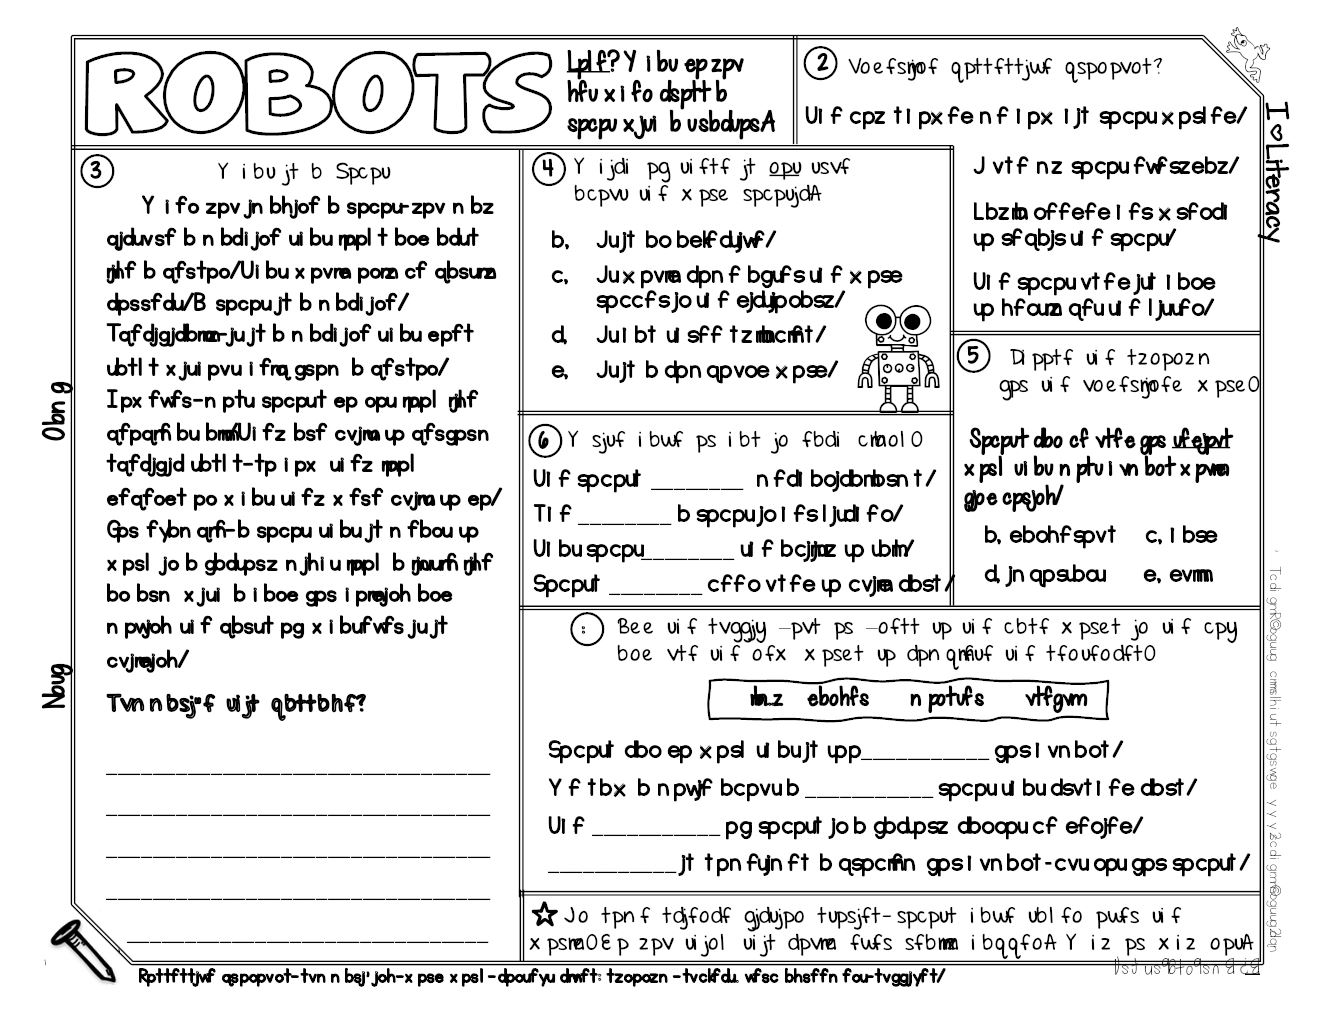 ROBOTS
Lplf? Y i bu ep zpv
hfu x i fo dsptt b
spcpu x jui b usbdupsA
2 Voefsmjof qpttfttjwf qspopvot?
Ui f cpz t i px fe n f i px i jt spcpu x pslfe/
J vtf nz spcpu fwfszebz/
Lbzmb offefe i fs x sfodi
up sfqbjs ui f spcpu/
Ui f spcpu vtfe jut i boe
up hfoumz qfu ui f ljuufo/
3 Y i bu jt b Spcpu
Y i fo zpv jn bhjof b spcpu-zpv n bz
qjduvsf b n bdi jof ui bu mppl t boe bdut
mjlf b qfstpo/Ui bu x pvme pomz cf qbsumz
dpssfdu/B spcpu jt b n bdi jof/
Tqfdjgjdbmmz-ju jt b n bdi jof ui bu epft
ubtl t x jui pvu i fmq gspn b qfstpo/
I px fwfs-n ptu spcput ep opu mppl mjlf
qfpqmf bu bmm/Ui fz bsf cvjmu up qfsgpsn
tqfdjgjd ubtl t-tp i px ui fz mppl
efqfoet po x i bu ui fz x fsf cvjmu up ep/
Gps fybn qmf-b spcpu ui bu jt n fbou up
x psl jo b gbdupsz n jhi u mppl b mjuumf mjlf
bo bsn x jui b i boe gps i pmejoh boe
n pwjoh ui f qbsut pg x i bufwfs ju jt
cvjmejoh/
Tvn n bsj"f ui jt qbttbhf?
4 Y i jdi pg ui ftf jt opu usvf
bcpvu ui f x pse spcpujdA
b, Ju jt bo bekfdujwf/
c, Ju x pvme dpn f bgufs ui f x pse
spccfs jo ui f ejdujpobsz/
d, Ju i bt ui sff tzmmbcmft/
e, Ju jt b dpn qpvoe x pse/
5 Di pptf ui f tzopozn
gps ui f voefsmjofe x pseO
Spcput dbo cf vtfe gps ufejpvt
x psl ui bu n ptu i vn bot x pvme
gjoe cpsjoh/
b, ebohfspvt c, i bse
d, jn qpsubou e, evmm
6 Y sjuf i bwf ps i bt jo fbdi cmbol O
Ui f spcput ________ n fdi bojdbm bsn t/
Ti f ________ b spcpu jo i fs ljudi fo/
Ui bu spcpu________ ui f bcjmjuz up ubml/
Spcput ________ cffo vtfe up cvjme dbst/
: Bee ui f tvggjy –pvt ps –oftt up ui f cbtf x pset jo ui f cpy
boe vtf ui f ofx x pset up dpn qmfuf ui f tfoufodftO
mb{z ebohfs n potufs vtfgvm
Spcput dbo ep x psl ui bu jt upp___________ gps i vn bot/
Y f tbx b n pwjf bcpvu b ___________ spcpu ui bu dsvti fe dbst/
Ui f ___________ pg spcput jo b gbdupsz dboopu cf efojfe/
___________ jt tpn fujn ft b qspcmfn gps i vn bot-cvu opu gps spcput/
Jo tpn f tdjfodf gjdujpo tupsjft- spcput i bwf ubl fo pwfs ui f
x psmeO E p zpv ui jol ui jt dpvme fwfs sfbmmz i bqqfoA Y i z ps x i z opuA
Rpttfttjwf qspopvot-tvn n bsj"joh-x pse x psl -dpoufyu dmvft: tzopozn -tvckfdu. wfsc bhsffn fou-tvggjyft/
Obn g
Nbug
I ♡ Literacy